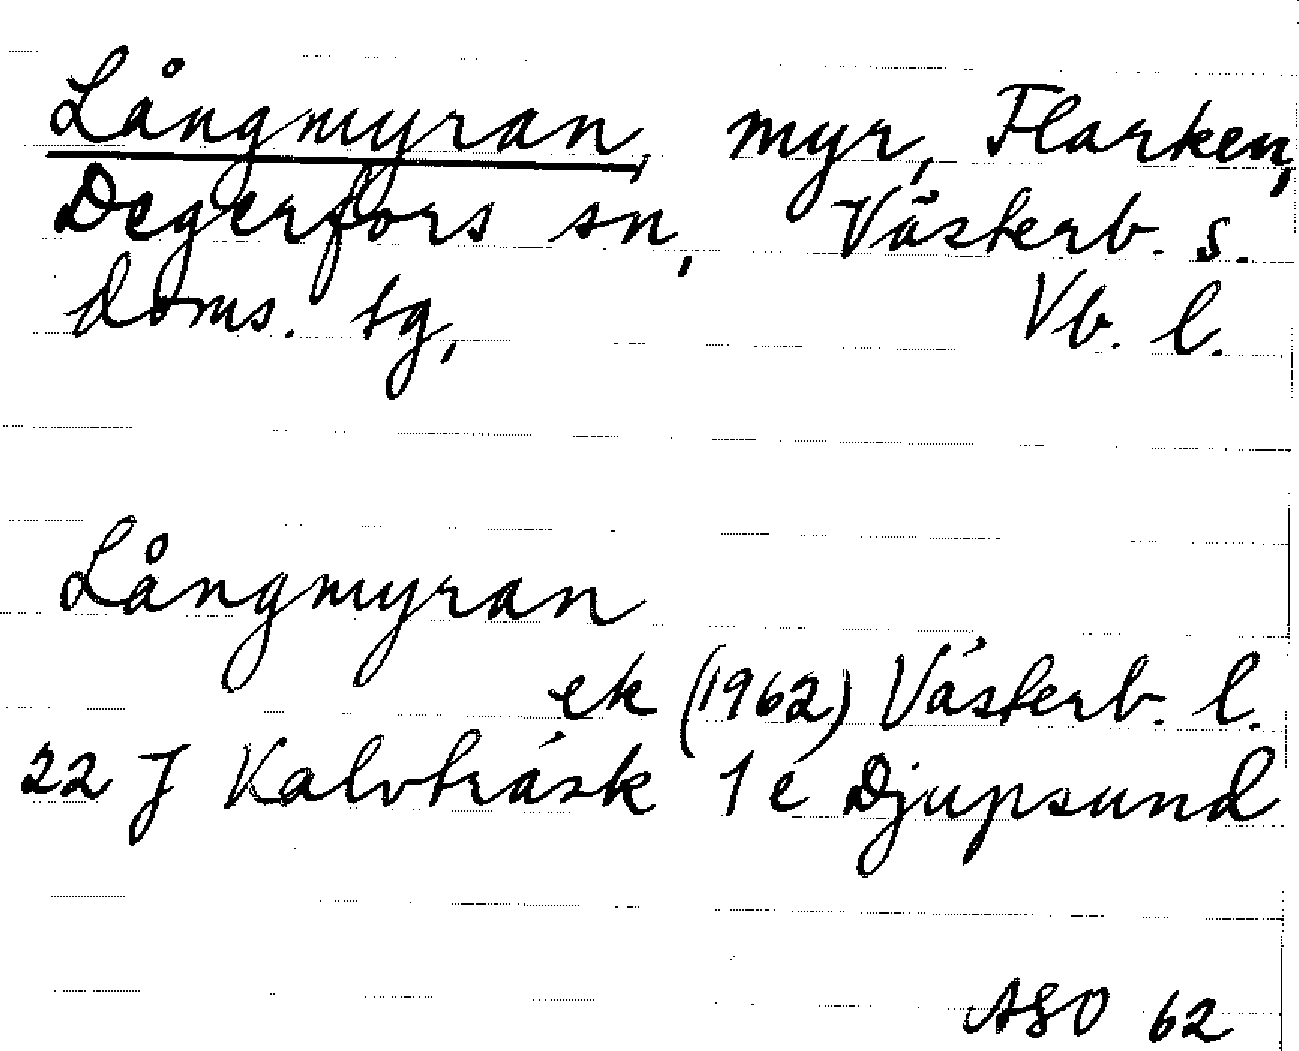 Långmyran, myr, Flarken,
Degerfors sn, Västerb. s.
doms. tg, Vb. l.
Långmyran
ek (1962) Västerb. l.
22 J Kalvträsk 1 e Djupsund
ASO 62